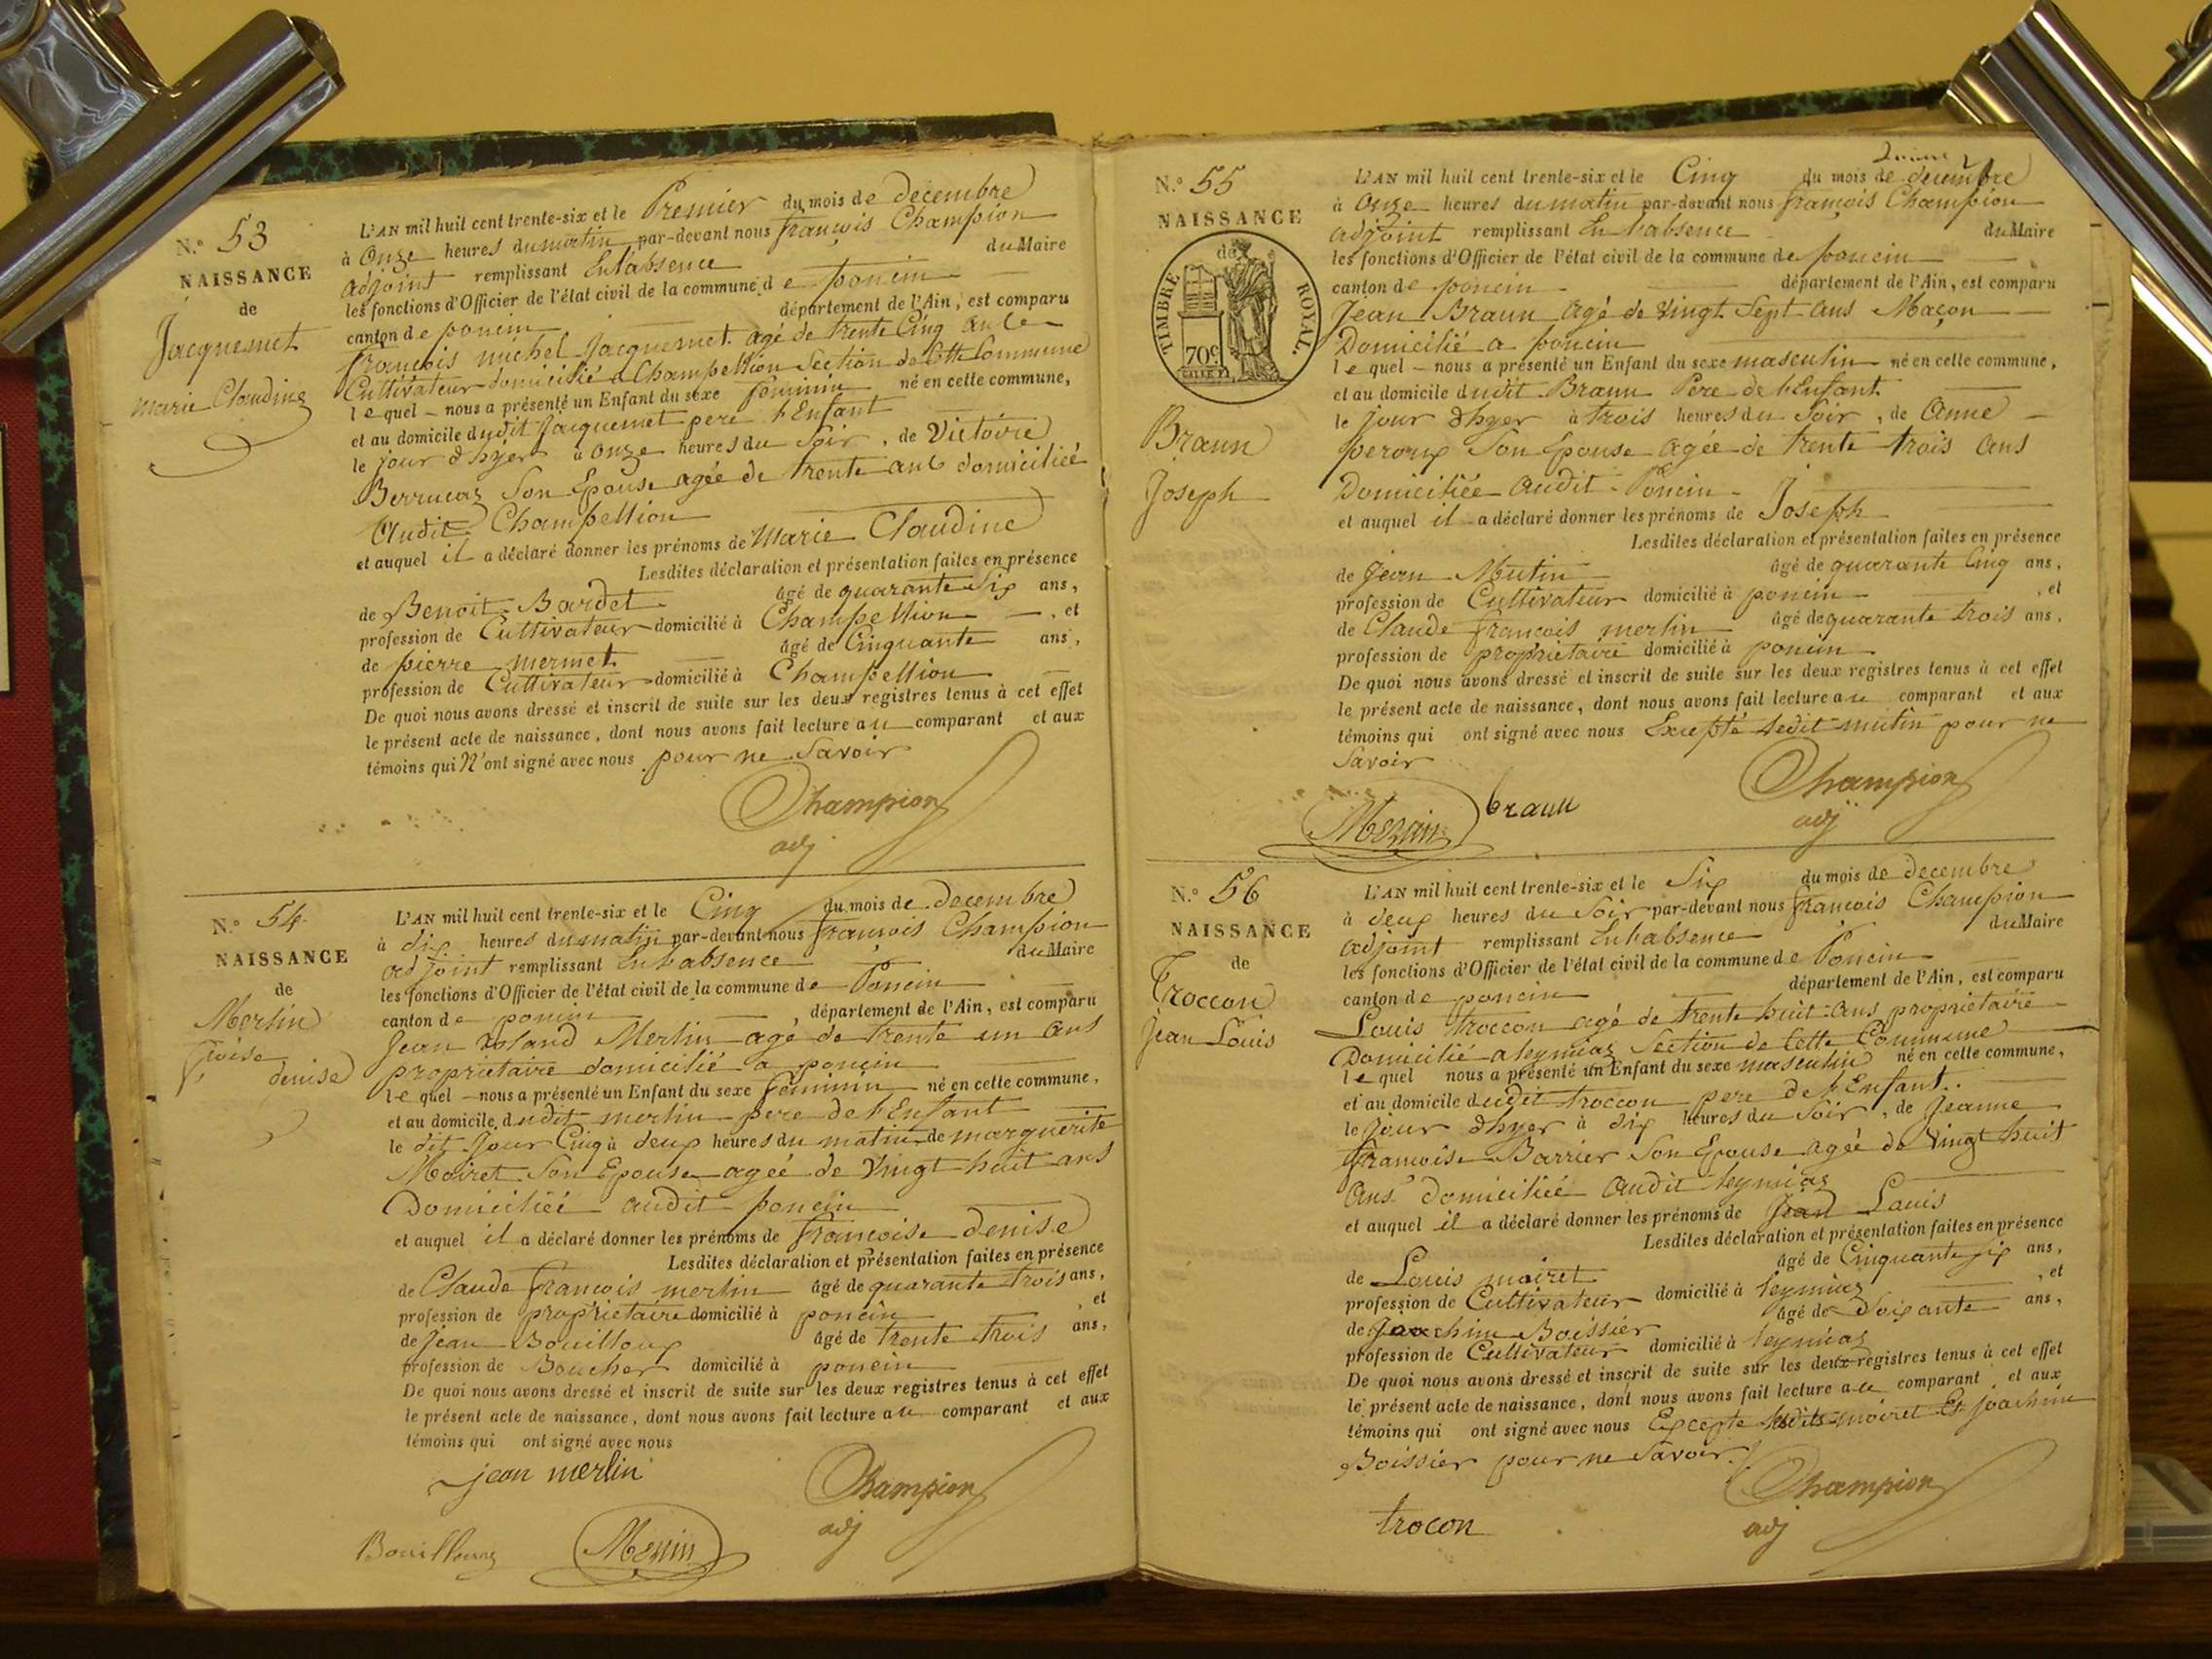 N.° 53
NAISSANCE
de
Jacquemet
marie Claudine
L'AN mil huit cent trente-six et le Premier du mois de decembre
à Onze heures du matin par-devant nous françois Champion
adjoint remplissant En l'absence du Maire
les fonctions d'Officier de l'état civil de la commune de poncin
canton de poncin département de l'Ain, est comparu
françois michel Jacquemet agé de trente Cinq ans
Cultivateur domicilié a Champellion Section de Cette Commune
lequel nous a présenté un Enfant du sexe feminin né en cette commune,
et au domicile dudit Jacquemet pere l'Enfant
le jour d'hyer à onze heures du Soir, de Victoire
Berrucaz Son Epouse agée de trente ans domiciliée
Audit Champellion
et auquel il a déclaré donner les prénoms de Marie Claudine
Lesdites déclaration et présentation faites en présence
de Benoit Bardet âgé de quarante Six ans,
profession de Cultivateur domicilié à Champellion , et
de pierre mermet âgé de Cinquante ans,
profession de Cultivateur domicilié à Champellion
De quoi nous avons dressé et inscrit de suite sur les deux registres tenus à cet effet
le présent acte de naissance, dont nous avons fait lecture au comparant et aux
témoins qui N'ont signé avec nous pour ne Savoir
Champion
adj
N.° 54
NAISSANCE
de
Merlin
denise
L'AN mil huit cent trente-six et le Cinq du mois de decembre
à dix heures du matin par-devant nous francois Champion
adjoint remplissant En l'absence du Maire
les fonctions d'Officier de l'état civil de la commune de Poncin
canton de poncin , département de l'Ain, est comparu
Jean Roland Merlin agé de trente un ans
proprietaire domicilié a poncin
lequel nous a présenté un Enfant du sexe feminin né en cette commune,
et au domicile dudit merlin pere de l'Enfant
le dit Jour Cinq à deux heures du matin de marguerite
Moiret Son Epouse agée de Vingt huit ans
Domiciliée audit poncin
et auquel il a déclaré donner les prénoms de francoise denise
Lesdites déclaration et présentation faites en présence
de Claude francois merlin âgé de quarante trois ans,
profession de proprietaire domicilié à poncin , et
de Jean Bouilloux âgé de trente trois ans,
profession de Boucher domicilié à poncin
De quoi nous avons dressé et inscrit de suite sur les deux registres tenus à cet effet
le présent acte de naissance, dont nous avons fait lecture au comparant et aux
témoins qui ont signé avec nous
jean merlin
Champion
adj
Bouilloux
N.° 55
NAISSANCE
de
TIMBRE ROYAL.
70c
Braun
Joseph
L'AN mil huit cent trente-six et le Cinq du mois de decembre
à Onze heures du matin par-devant nous françois Champion
adjoint remplissant En l'absence du Maire
les fonctions d'Officier de l'état civil de la commune de poncin
canton de poncin département de l'Ain, est comparu
Jean Braun agé de Vingt Sept ans Maçon
Domicilié a poncin
lequel nous a présenté un Enfant du sexe masculin né en cette commune,
et au domicile dudit Braun Pere de l'Enfant
le jour d'hyer à trois heures du Soir, de Anne
peroux Son Epouse agée de trente trois ans
Domiciliée audit Poncin
et auquel il a déclaré donner les prénoms de Joseph
Lesdites déclaration et présentation faites en présence
de Jean Mutin âgé de quarante Cinq ans,
profession de Cultivateur domicilié à poncin , et
de Claude francois merlin âgé de quarante trois ans,
profession de proprietaire domicilié à poncin
De quoi nous avons dressé et inscrit de suite sur les deux registres tenus à cet effet
le présent acte de naissance, dont nous avons fait lecture au comparant et aux
témoins qui ont signé avec nous Excepté ledit mutin pour ne
Savoir
braun
Champion
adj
N.° 56
NAISSANCE
de
Troccon
Jean Louis
L'AN mil huit cent trente-six et le Six du mois de decembre
à deux heures du Soir par-devant nous francois Champion
adjoint remplissant En l'absence du Maire
les fonctions d'Officier de l'état civil de la commune de Poncin
canton de poncin département de l'Ain, est comparu
Louis troccon agé de trente huit ans proprietaire
Domicilié a leymiaz Section de Cette Commune
lequel nous a présenté un Enfant du sexe masculin né en cette commune,
et au domicile dudit troccon pere de l'Enfant
le jour d'hyer à dix heures du Soir, de Jeanne
francoise Barrier Son Epouse agée de Vingt huit
ans domiciliée audit leymiaz
et auquel il a déclaré donner les prénoms de Jean Louis
Lesdites déclaration et présentation faites en présence
de Louis moiret âgé de Cinquante six ans,
profession de Cultivateur domicilié à leymiaz , et
de Joachim Boissier âgé de Soixante ans,
profession de Cultivateur domicilié à leymiaz
De quoi nous avons dressé et inscrit de suite sur les deux registres tenus à cet effet
le présent acte de naissance, dont nous avons fait lecture au comparant et aux
témoins qui ont signé avec nous Excepte lesdits moiret Et Joachim
Boissier pour ne Savoir
Champion
adj
trocon